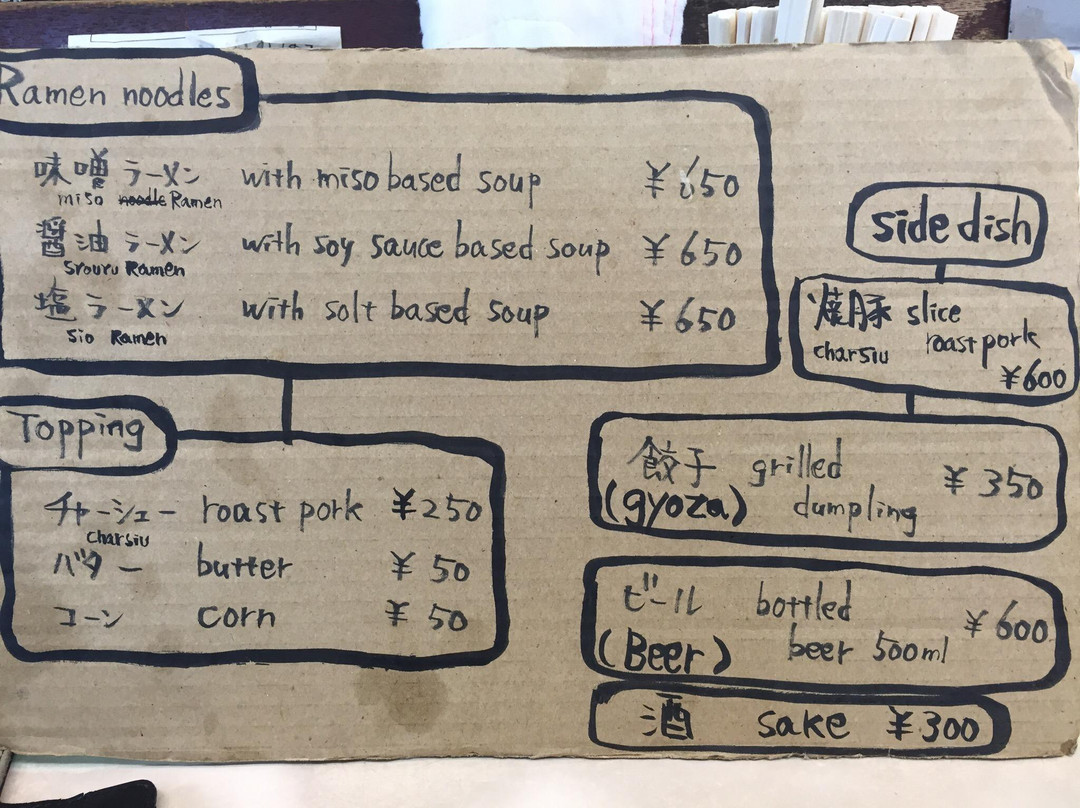 Ramen noodles
味噌 ラーメン with miso based soup ¥650
miso noodle Ramen
醤油 ラーメン with soy sauce based soup ¥650
Srouyu Ramen
塩 ラーメン with solt based soup ¥650
Sio Ramen
Topping
チャーシュー roast pork ¥250
charsiu
バター butter ¥50
コーン corn ¥50
side dish
焼豚 slice
charsiu roast pork
¥600
餃子 grilled ¥350
(gyoza) dumpling
ビール bottled ¥600
(Beer) beer 500ml
酒 sake ¥300